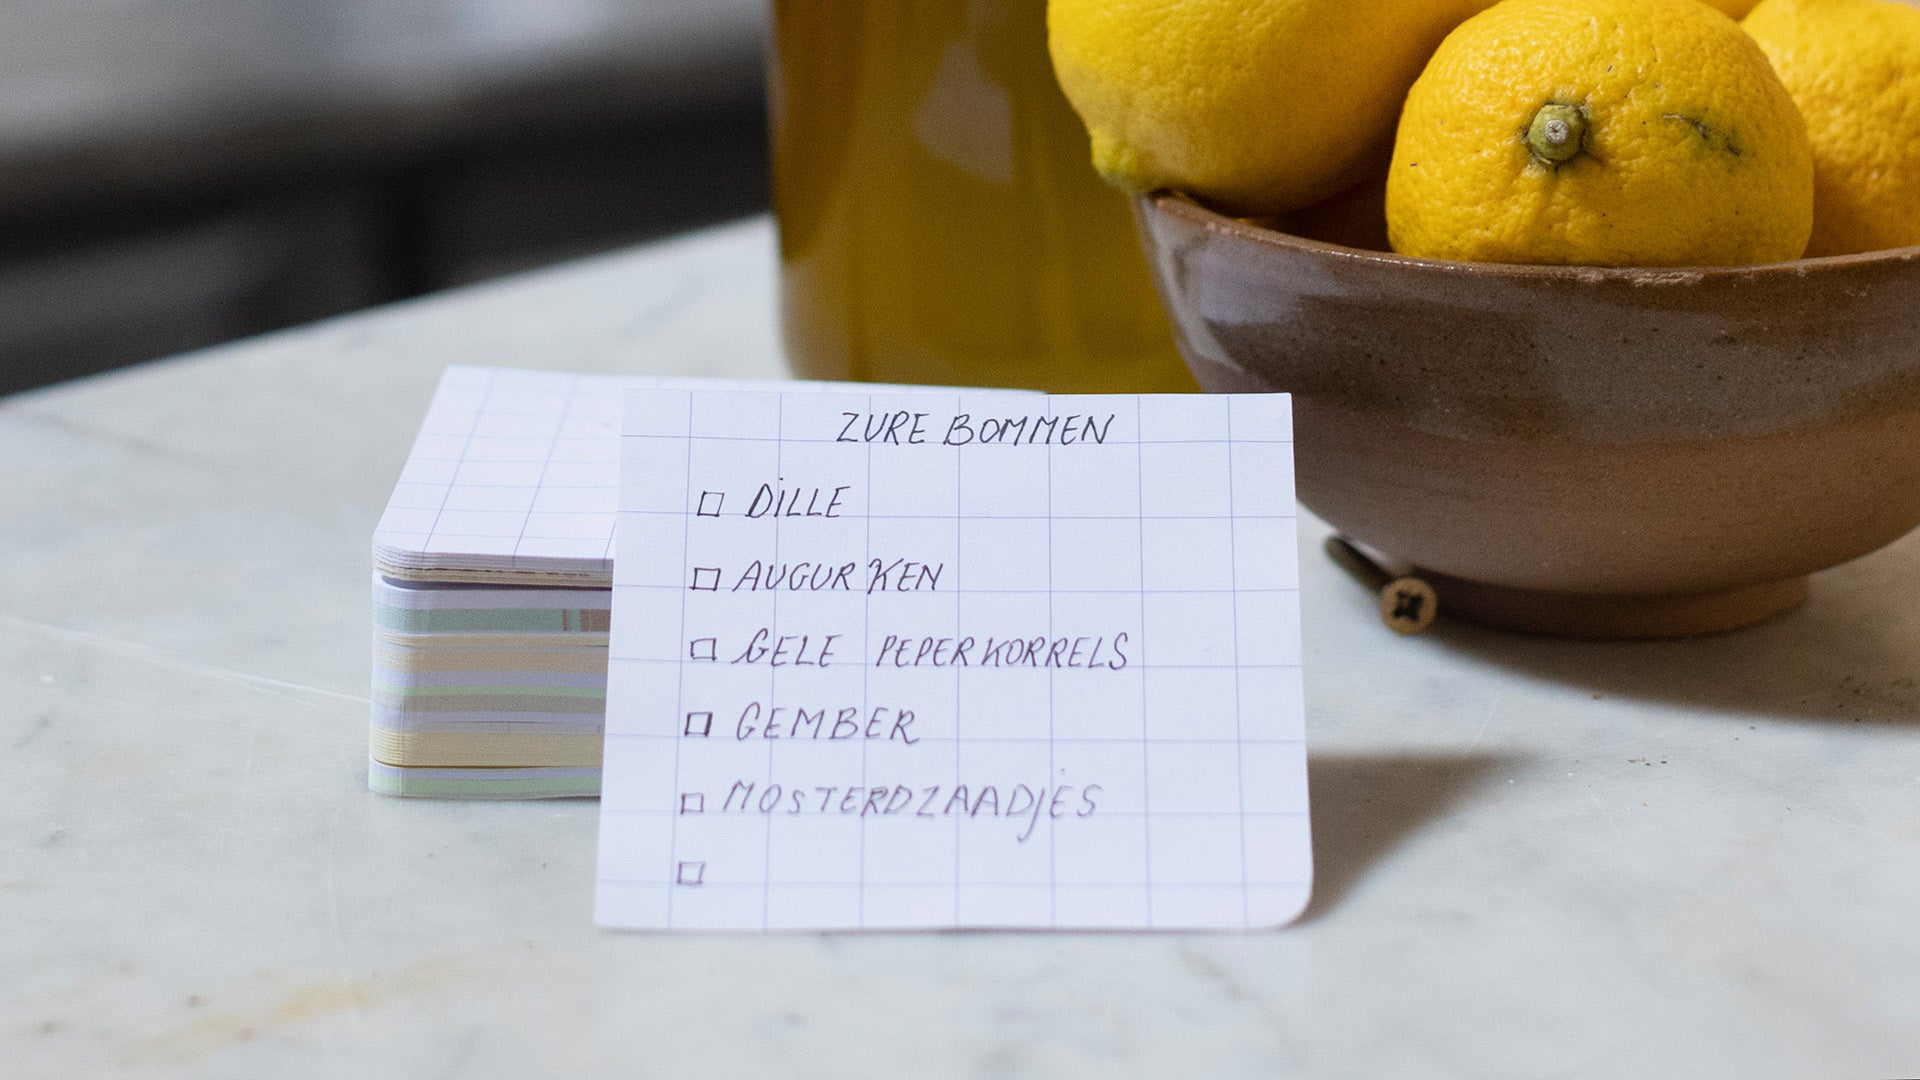 ZURE BOMMEN
DILLE
AUGURKEN
GELE PEPERKORRELS
GEMBER
MOSTERDZAADJES